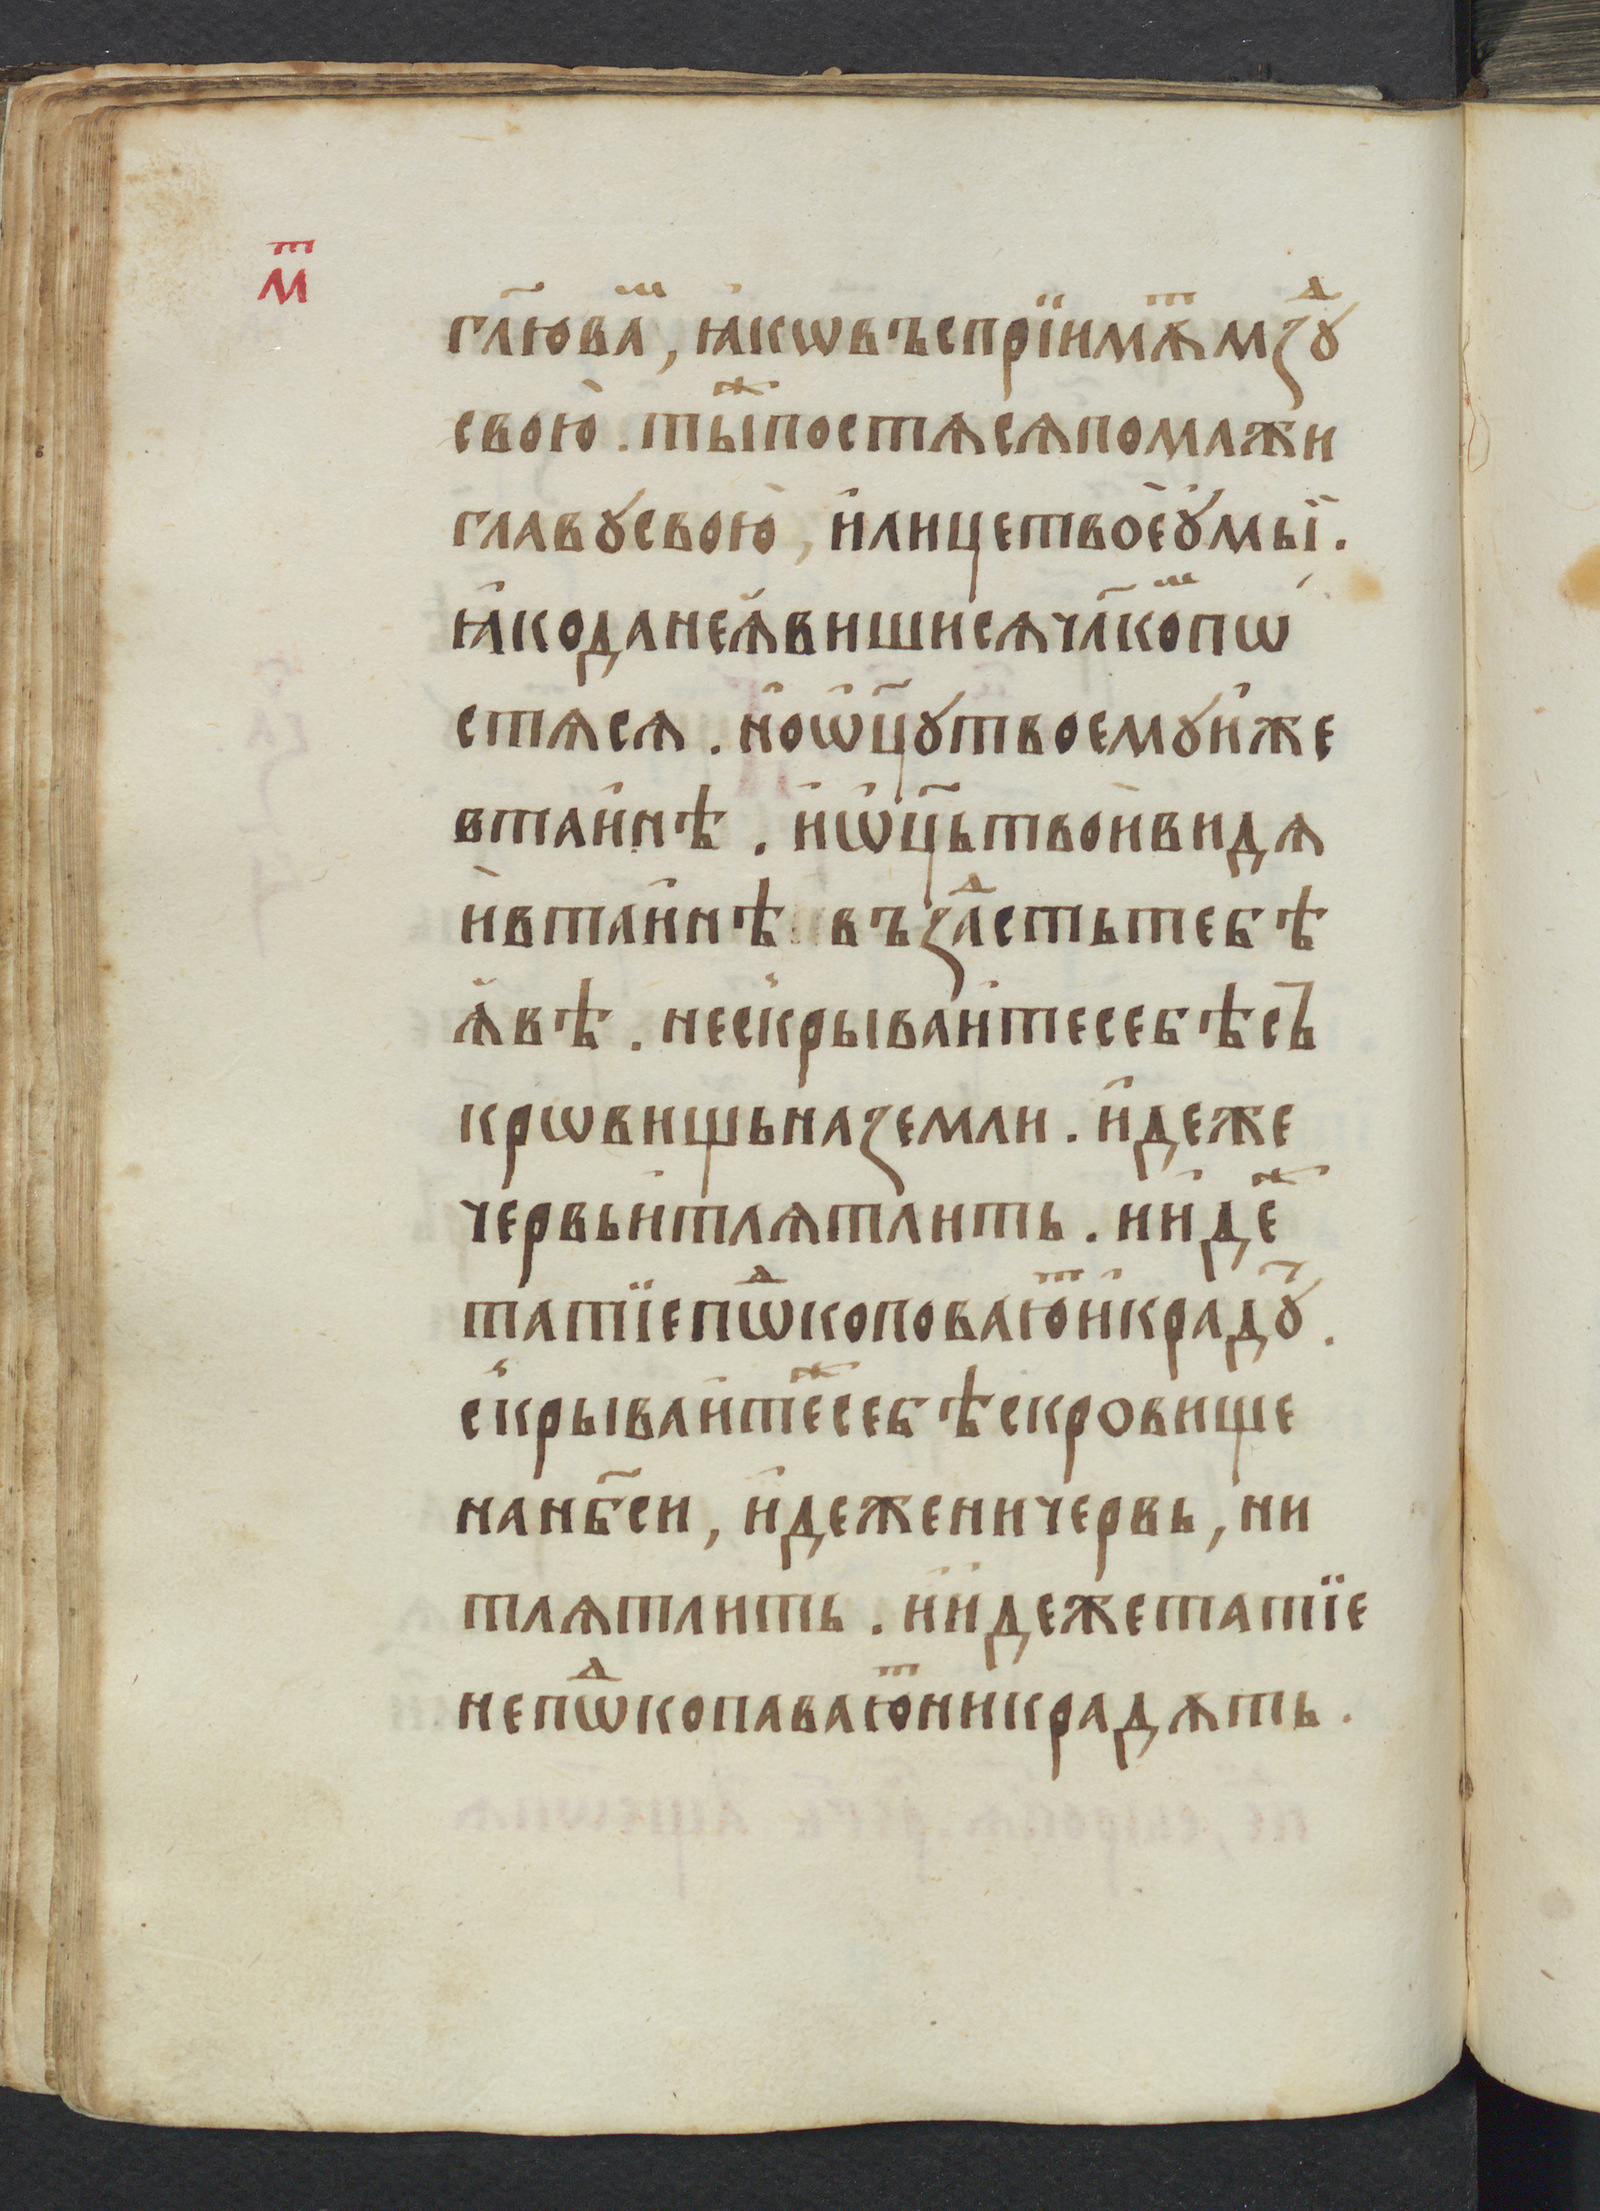 мⷮ
гл҃ю ваⷨ, ꙗ҆кѡ въспрїимꙙⷮ мꙁⷣꙋ
свою̀. ты́ⷤ постѧсѧ помажи
главꙋ свою̀, и҆ лице твоѐ ᲂу҆мы̀ї.
ꙗ҆ко да не ꙗ҆вишисѧ чл҃комⷨ пѡ
стѧсѧ. но̀ ѿц҃ꙋ твоемꙋ и҆же
в таи҆нѣ. и҆ ѿц҃ь твои҆ видѧ
и҆ в таи҆нѣ въꙁⷣасть тебѣ
ꙗ҆вѣ. не скрываи҆те себѣ съ
крѡвищь на ꙁемли. и҆деже
червь и҆ тлѧ тлить. и и҆деⷤ
татїе пѡⷣкоповаюⷮ и҆ крадꙋ́.
скрываи҆теⷤ себѣ скровище
на нб҃си, и҆деже ни червь, ни
тлѧ тлить. и҆ и҆деже татїе
не пѡⷣкопаваюⷮ ни крадѧть.